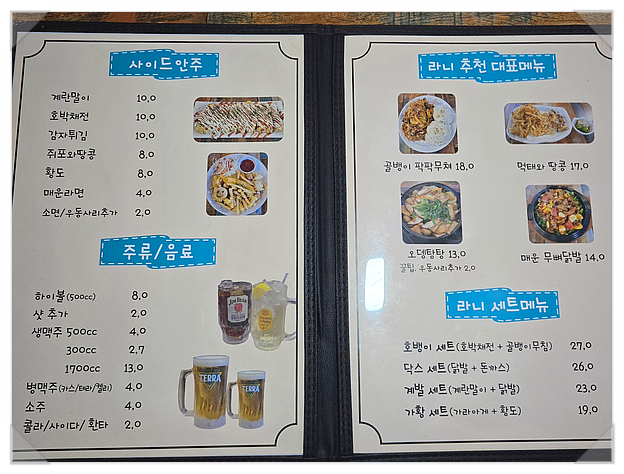 사이드안주
계란말이 10,0
호박채전 10,0
감자튀김 10,0
쥐포와땅콩 8,0
황도 8,0
매운라면 4,0
소면/우동사리추가 2,0
주류/음료
하이볼(500cc) 8,0
샷 추가 2,0
생맥주 500cc 4,0
300cc 2,7
1700cc 13,0
병맥주(카스/테라/켈리) 4,0
소주 4,0
콜라/사이다/환타 2,0
JIM BEAM
TERRA
TERRA
라니 추천 대표메뉴
골뱅이 팍팍무쳐 18,0
먹태와 땅콩 17,0
오뎅탕탕 13,0
꿀팁. 우동사리추가 2,0
매운 무뼈닭발 14,0
라니 세트메뉴
호뱅이 세트(호박채전 + 골뱅이무침) 27,0
닥스 세트(닭발 + 돈까스) 26,0
계발 세트(계란말이 + 닭발) 23,0
가황 세트(가라아게 + 황도) 19,0